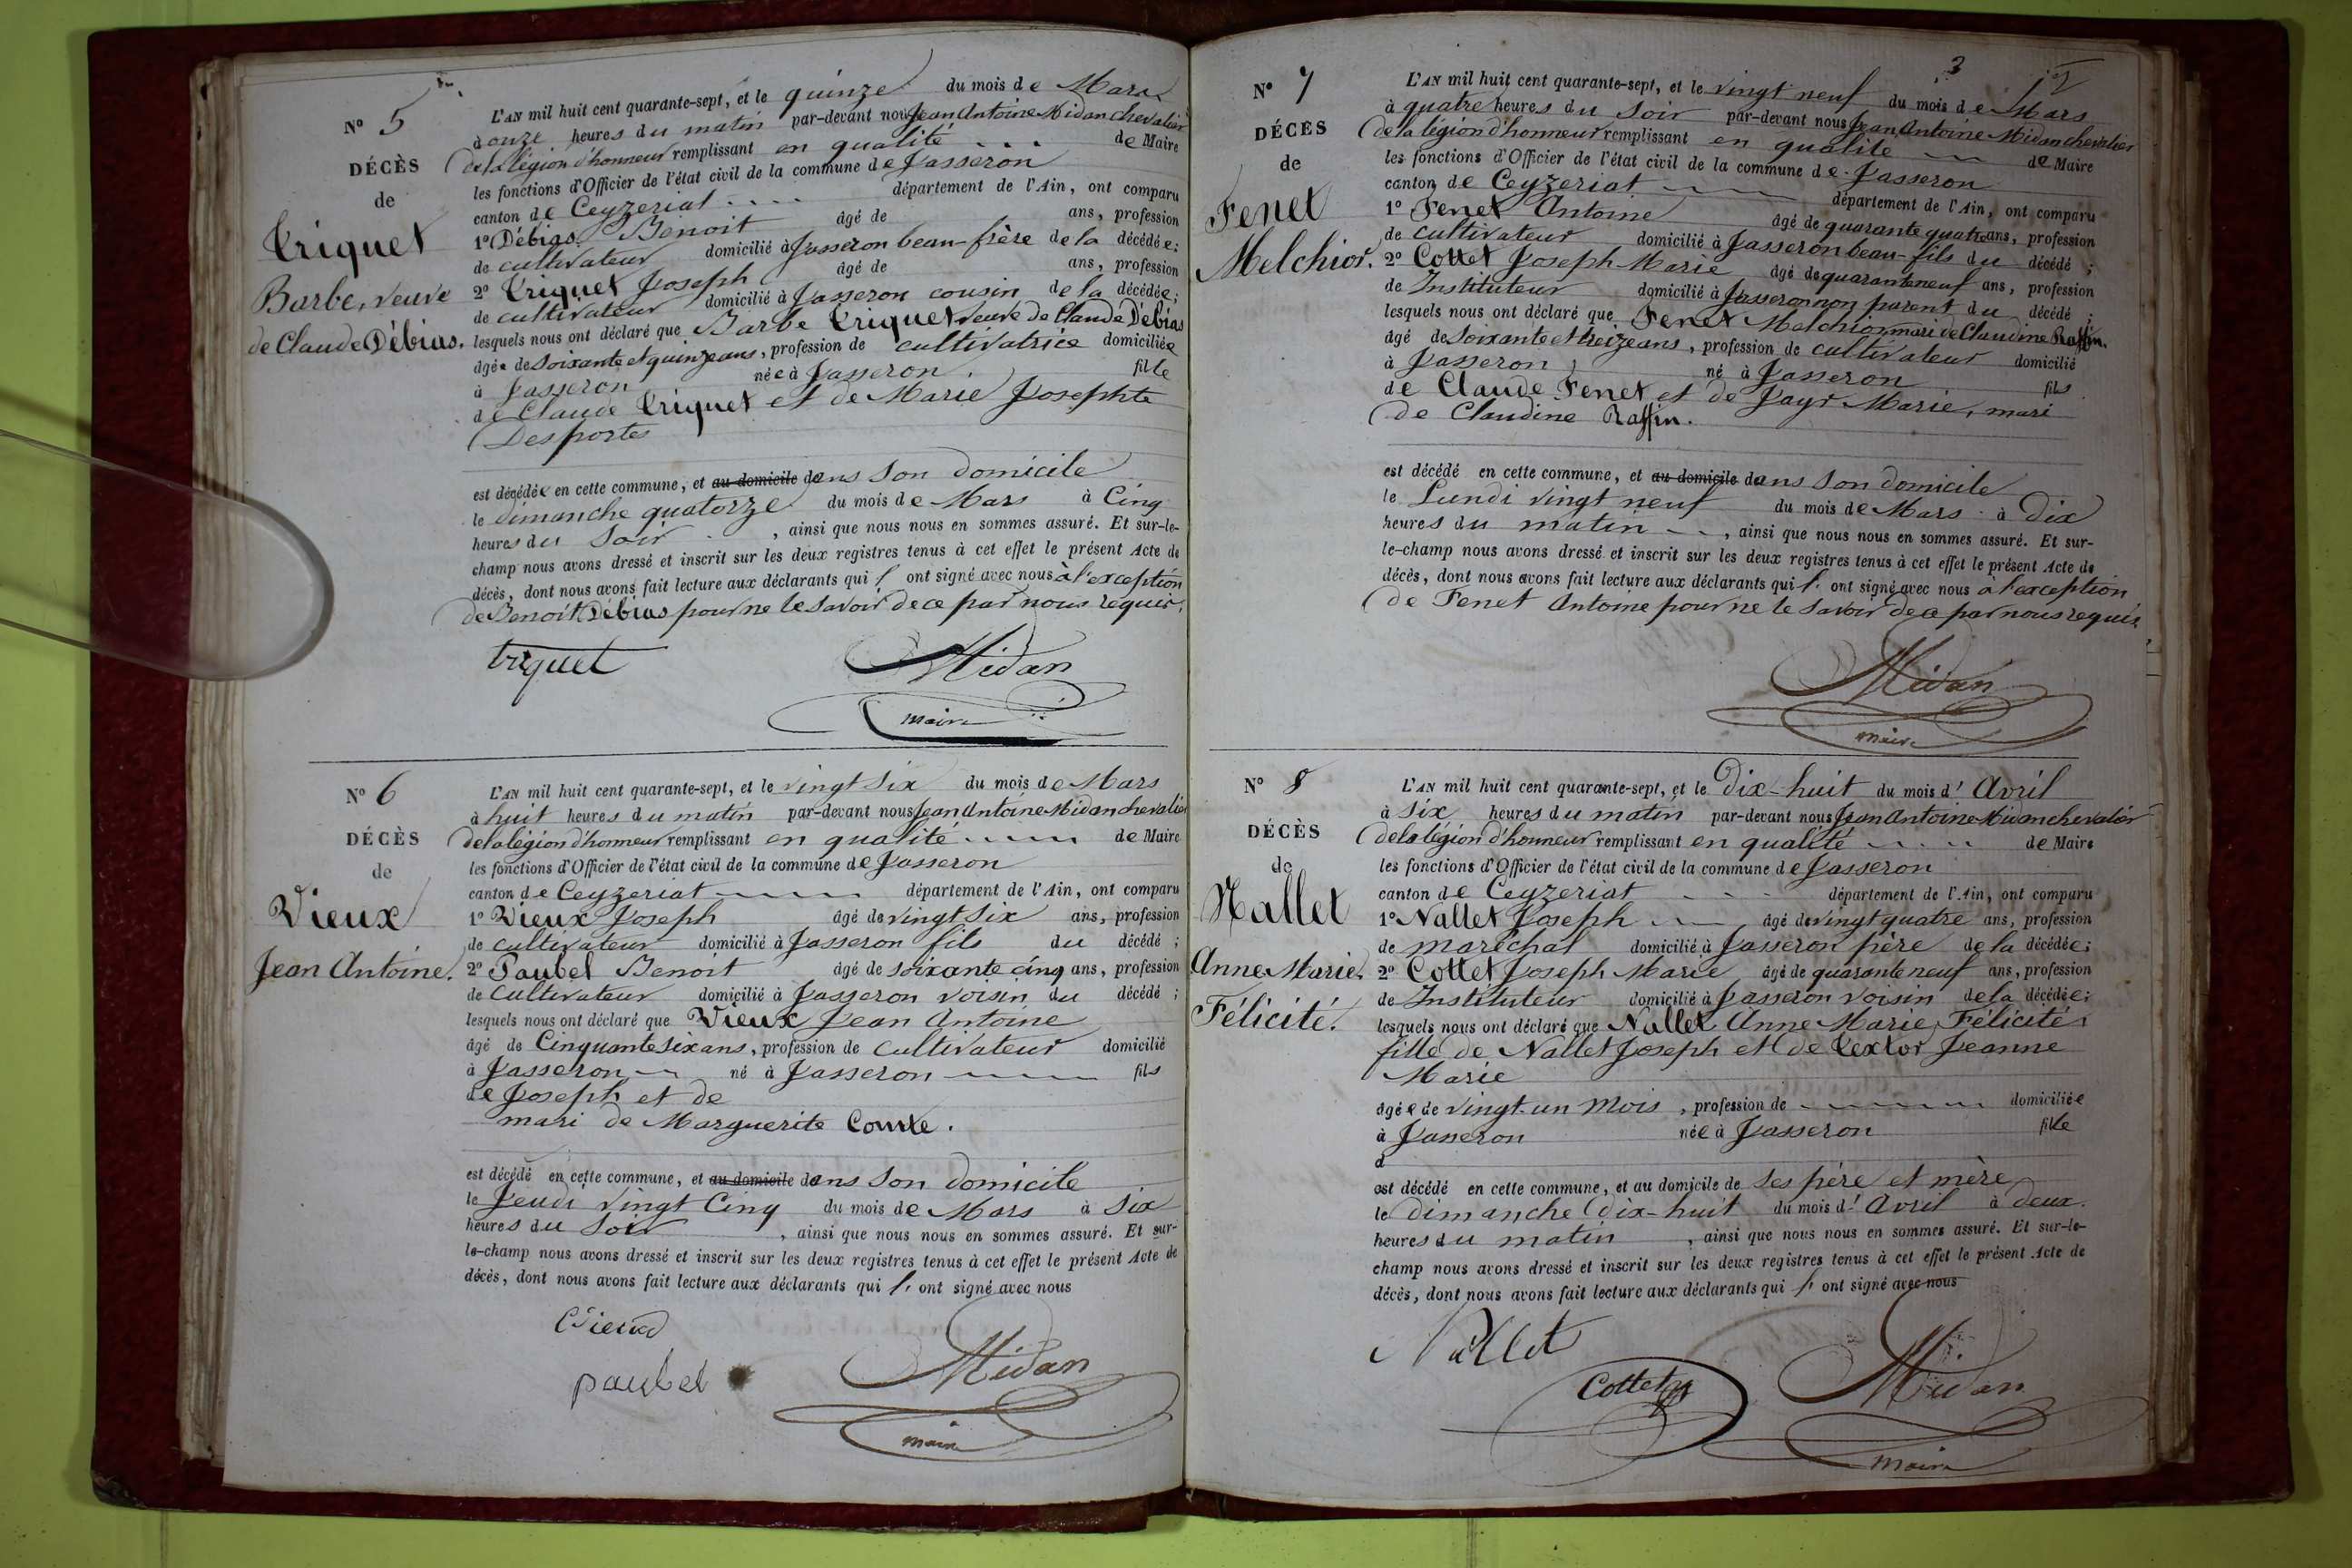 N° 5
DÉCÈS
de
Triquet
Barbe, veuve
de Claude Débias.
L'AN mil huit cent quarante-sept, et le quinze du mois de Mars
à onze heures du matin par-devant nous Jean Antoine Midan chevalier
de la légion d'honneur remplissant en qualité de Maire
les fonctions d'Officier de l'état civil de la commune de Jasseron
canton de Ceyzeriat département de l'Ain, ont comparu
1° Débias Benoit âgé de ans, profession
de cultivateur domicilié à Jasseron beau-frère de la décédée;
2° Triquet Joseph âgé de ans, profession
de cultivateur domicilié à Jasseron cousin de la décédée;
lesquels nous ont déclaré que Barbe Triquet veuve de Claude Débias
âgée de soixante et quinze ans, profession de cultivatrice domiciliée
à Jasseron née à Jasseron. fille
de Claude Triquet et de Marie Josephte
Desportes
est décédée en cette commune, et au domicile dans son domicile
le dimanche quatorze du mois de Mars à Cinq
heures du soir, ainsi que nous nous en sommes assuré. Et sur-le-
champ nous avons dressé et inscrit sur les deux registres tenus à cet effet le présent Acte de
décès, dont nous avons fait lecture aux déclarants qui l' ont signé avec nous à l'exception
de Benoit Débias pour ne le savoir de ce par nous requis.
triquet Midan
maire
N° 6
DÉCÈS
de
Vieux
Jean Antoine.
L'AN mil huit cent quarante-sept, et le vingt six du mois de Mars
à huit heures du matin par-devant nous Jean Antoine Midan chevalier
de la légion d'honneur remplissant en qualité de Maire
les fonctions d'Officier de l'état civil de la commune de Jasseron
canton de Ceyzeriat département de l'Ain, ont comparu
1° Vieux Joseph âgé de vingt six ans, profession
de cultivateur domicilié à Jasseron fils du décédé;
2° Paubel Benoit âgé de soixante cinq ans, profession
de cultivateur domicilié à Jasseron voisin du décédé;
lesquels nous ont déclaré que Vieux Jean Antoine
âgé de Cinquante six ans, profession de cultivateur domicilié
à Jasseron né à Jasseron fils
de Joseph et de
mari de Marguerite Comte.
est décédé en cette commune, et au domicile dans son domicile
le Jeudi vingt Cinq du mois de Mars à six
heures du soir, ainsi que nous nous en sommes assuré. Et sur-
le-champ nous avons dressé et inscrit sur les deux registres tenus à cet effet le présent Acte de
décès, dont nous avons fait lecture aux déclarants qui l' ont signé avec nous
Vieux Midan
paubel
maire
3
N° 7
DÉCÈS
de
Fenet
Melchior.
L'AN mil huit cent quarante-sept, et le vingt neuf du mois de Mars
à quatre heures du soir par-devant nous Jean Antoine Midan chevalier
de la légion d'honneur remplissant en qualité de Maire
les fonctions d'Officier de l'état civil de la commune de Jasseron
canton de Ceyzeriat département de l'Ain, ont comparu
1° Fenet Antoine âgé de quarante quatre ans, profession
de cultivateur domicilié à Jasseron beau-fils du décédé;
2° Cottet Joseph Marie âgé de quarante neuf ans, profession
de Instituteur domicilié à Jasseron non parent du décédé;
lesquels nous ont déclaré que Fenet Melchior mari de Claudine Raffin.
âgé de soixante et treize ans, profession de cultivateur domicilié
à Jasseron, né à Jasseron fils
de Claude Fenet et de Jayr Marie, mari
de Claudine Raffin.
est décédé en cette commune, et au domicile dans son domicile
le Lundi vingt neuf du mois de Mars à Dix
heures du matin, ainsi que nous nous en sommes assuré. Et sur-
le-champ nous avons dressé et inscrit sur les deux registres tenus à cet effet le présent Acte de
décès, dont nous avons fait lecture aux déclarants qui l' ont signé avec nous à l'exception
de Fenet Antoine pour ne le savoir de ce par nous requis
Midan
maire
N° 8
DÉCÈS
de
Nallet
Anne Marie.
Félicité.
L'AN mil huit cent quarante-sept, et le Dix-huit du mois d'Avril
à six heures du matin par-devant nous Jean Antoine Midan chevalier
de la légion d'honneur remplissant en qualité de Maire
les fonctions d'Officier de l'état civil de la commune de Jasseron
canton de Ceyzeriat département de l'Ain, ont comparu
1° Nallet Joseph âgé de vingt quatre ans, profession
de maréchal domicilié à Jasseron père de la décédée;
2° Cottet Joseph Marie âgé de quarante neuf ans, profession
de Instituteur domicilié à Jasseron voisin de la décédée;
lesquels nous ont déclaré que Nallet Anne Marie, Félicité
fille de Nallet Joseph et de Textor Jeanne
Marie
âgée de vingt-un Mois, profession de domiciliée
à Jasseron née à Jasseron fille
d
est décédé en cette commune, et au domicile de ses père et mère
le dimanche dix-huit du mois d'Avril à deux
heures du matin, ainsi que nous nous en sommes assuré. Et sur-le-
champ nous avons dressé et inscrit sur les deux registres tenus à cet effet le présent Acte de
décès, dont nous avons fait lecture aux déclarants qui l' ont signé avec nous
Nallet
Cottet Midan
maire